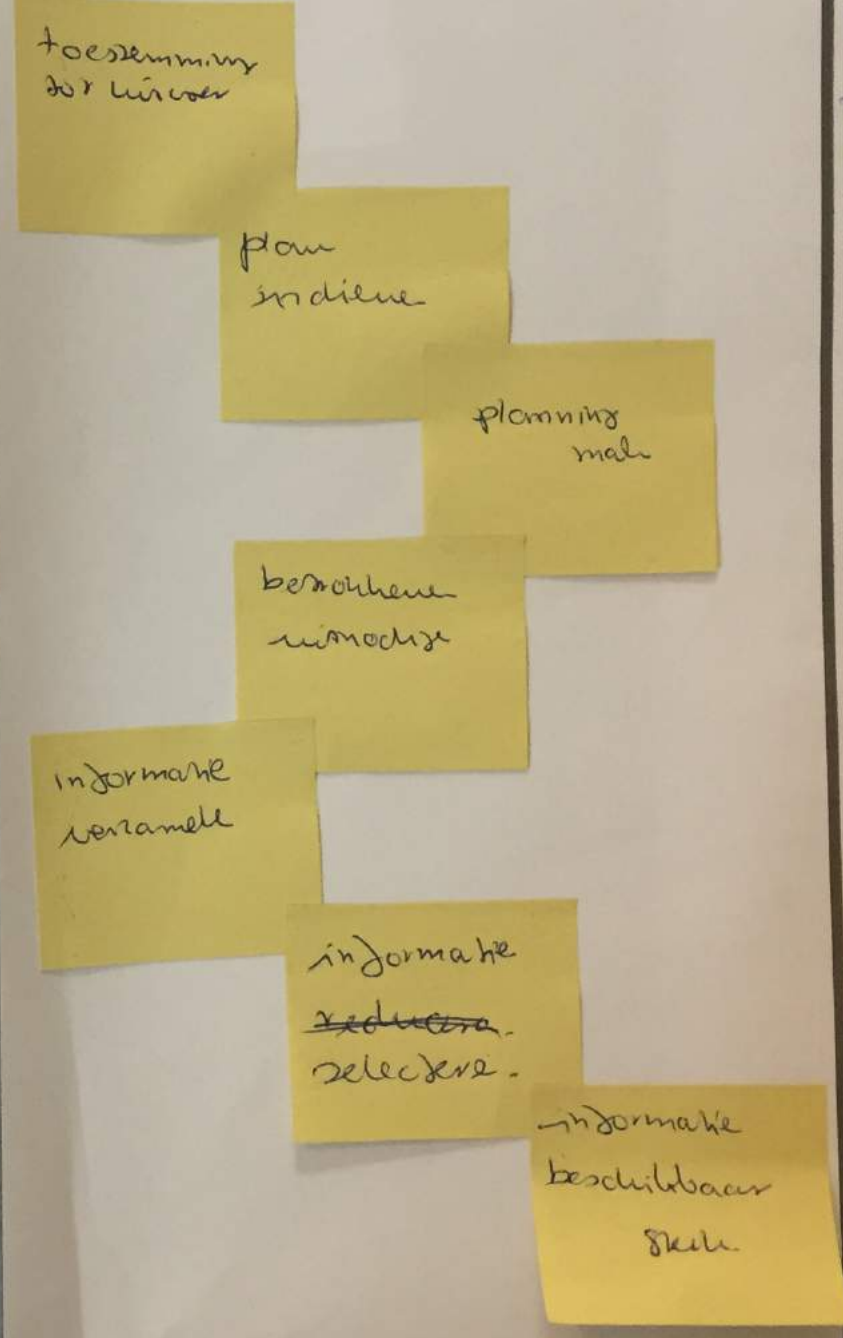 toestemming
tot uitvoer
plan
indiene
planning
make
betrokkene
uitnodige
informatie
verzamele
informatie
reducere.
selectere.
informatie
beschikbaar
stelle.